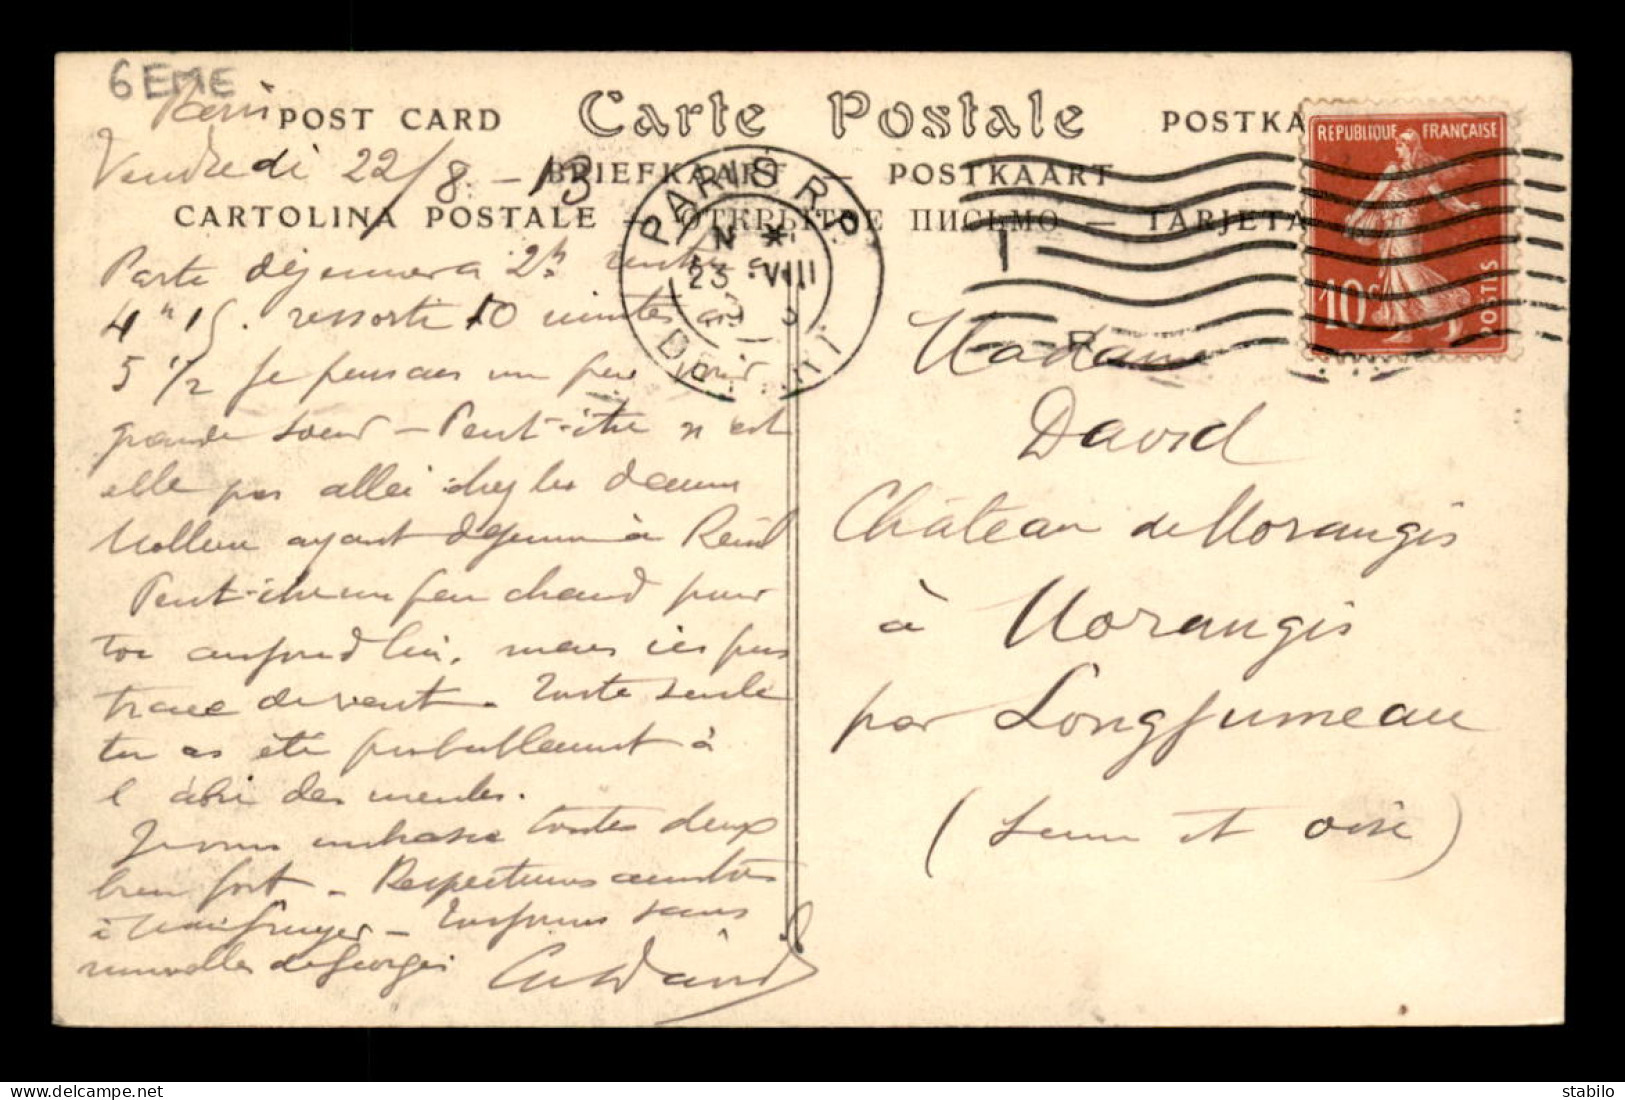 6 EME
Paris
POST CARD Carte Postale POSTKA
Vendredi 22/8 - 13
BRIEFKAART — POSTKAART
CARTOLINA POSTALE — ОТКРЫТОЕ ПИСЬМО — TARJETA
PARIS R.P.
N *
23 VIII
DÉPART
RÉPUBLIQUE FRANÇAISE
10c
POSTES
Parti déjeuner à 2h rentré à
4h 15. ressorti 10 minutes
5 1/2 Je pensais un peu voir
grande soeur - Peut-être n'est
elle pas allée chez les
ayant déjeuné à
Peut-être un peu chaud pour
toi aujourd'hui. mais ici pas
trace de vent - Toute seule
tu as été probablement à
l'abri des meules.
Je vous embrasse toutes deux
bien fort - Respectueuses amitiés
à - Toujours sans
nouvelles de Georges
David
Madame
David
Château de Morangis
à Morangis
par Longjumeau
(Seine et Oise)
delcampe.net
stabilo